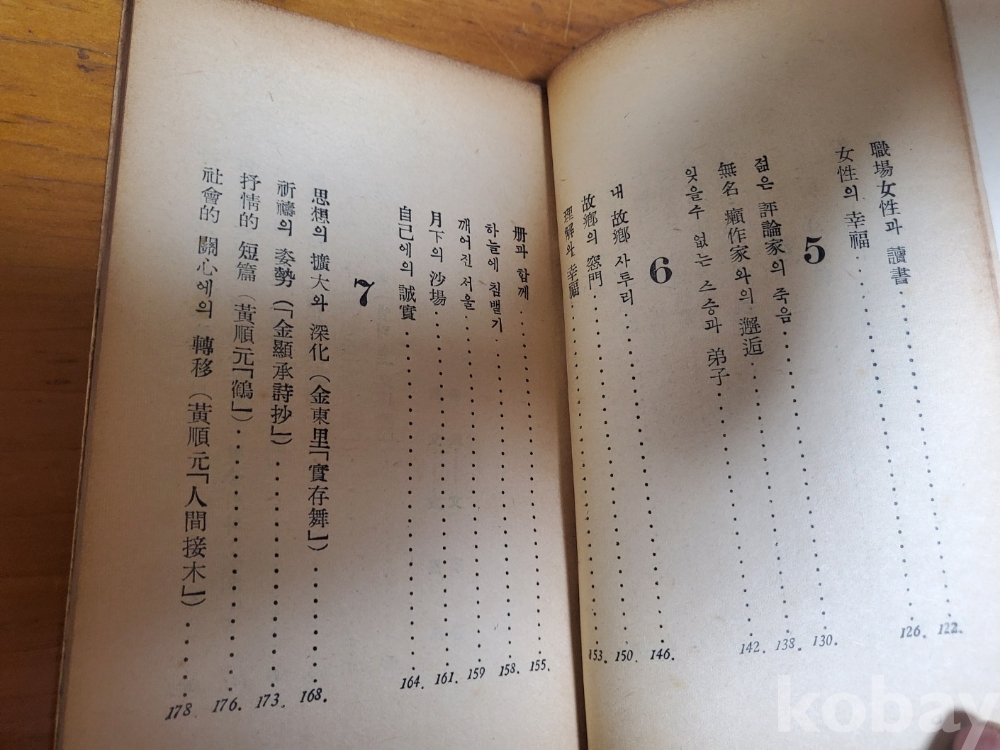 職場女性과 讀書 122.
女性의 幸福 126.
5
젊은 評論家의 죽음 130.
無名 癩作家와의 邂逅 138.
잊을수 없는 스승과 弟子 142.
6
내 故鄕 사투리 146.
故鄕의 窓門 150.
理解와 幸福 153.
册과 함께 155.
하늘에 침뱉기 158.
깨어진 서울 159
月下의 沙場 161.
自己에의 誠實 164.
7
思想의 擴大와 深化 (金東里「實存舞」) 168.
祈禱의 姿勢 (「金顯承詩抄」) 173.
抒情的 短篇 (黃順元「鶴」) 176.
社會的 關心에의 轉移 (黃順元「人間接木」) 178.
kobay